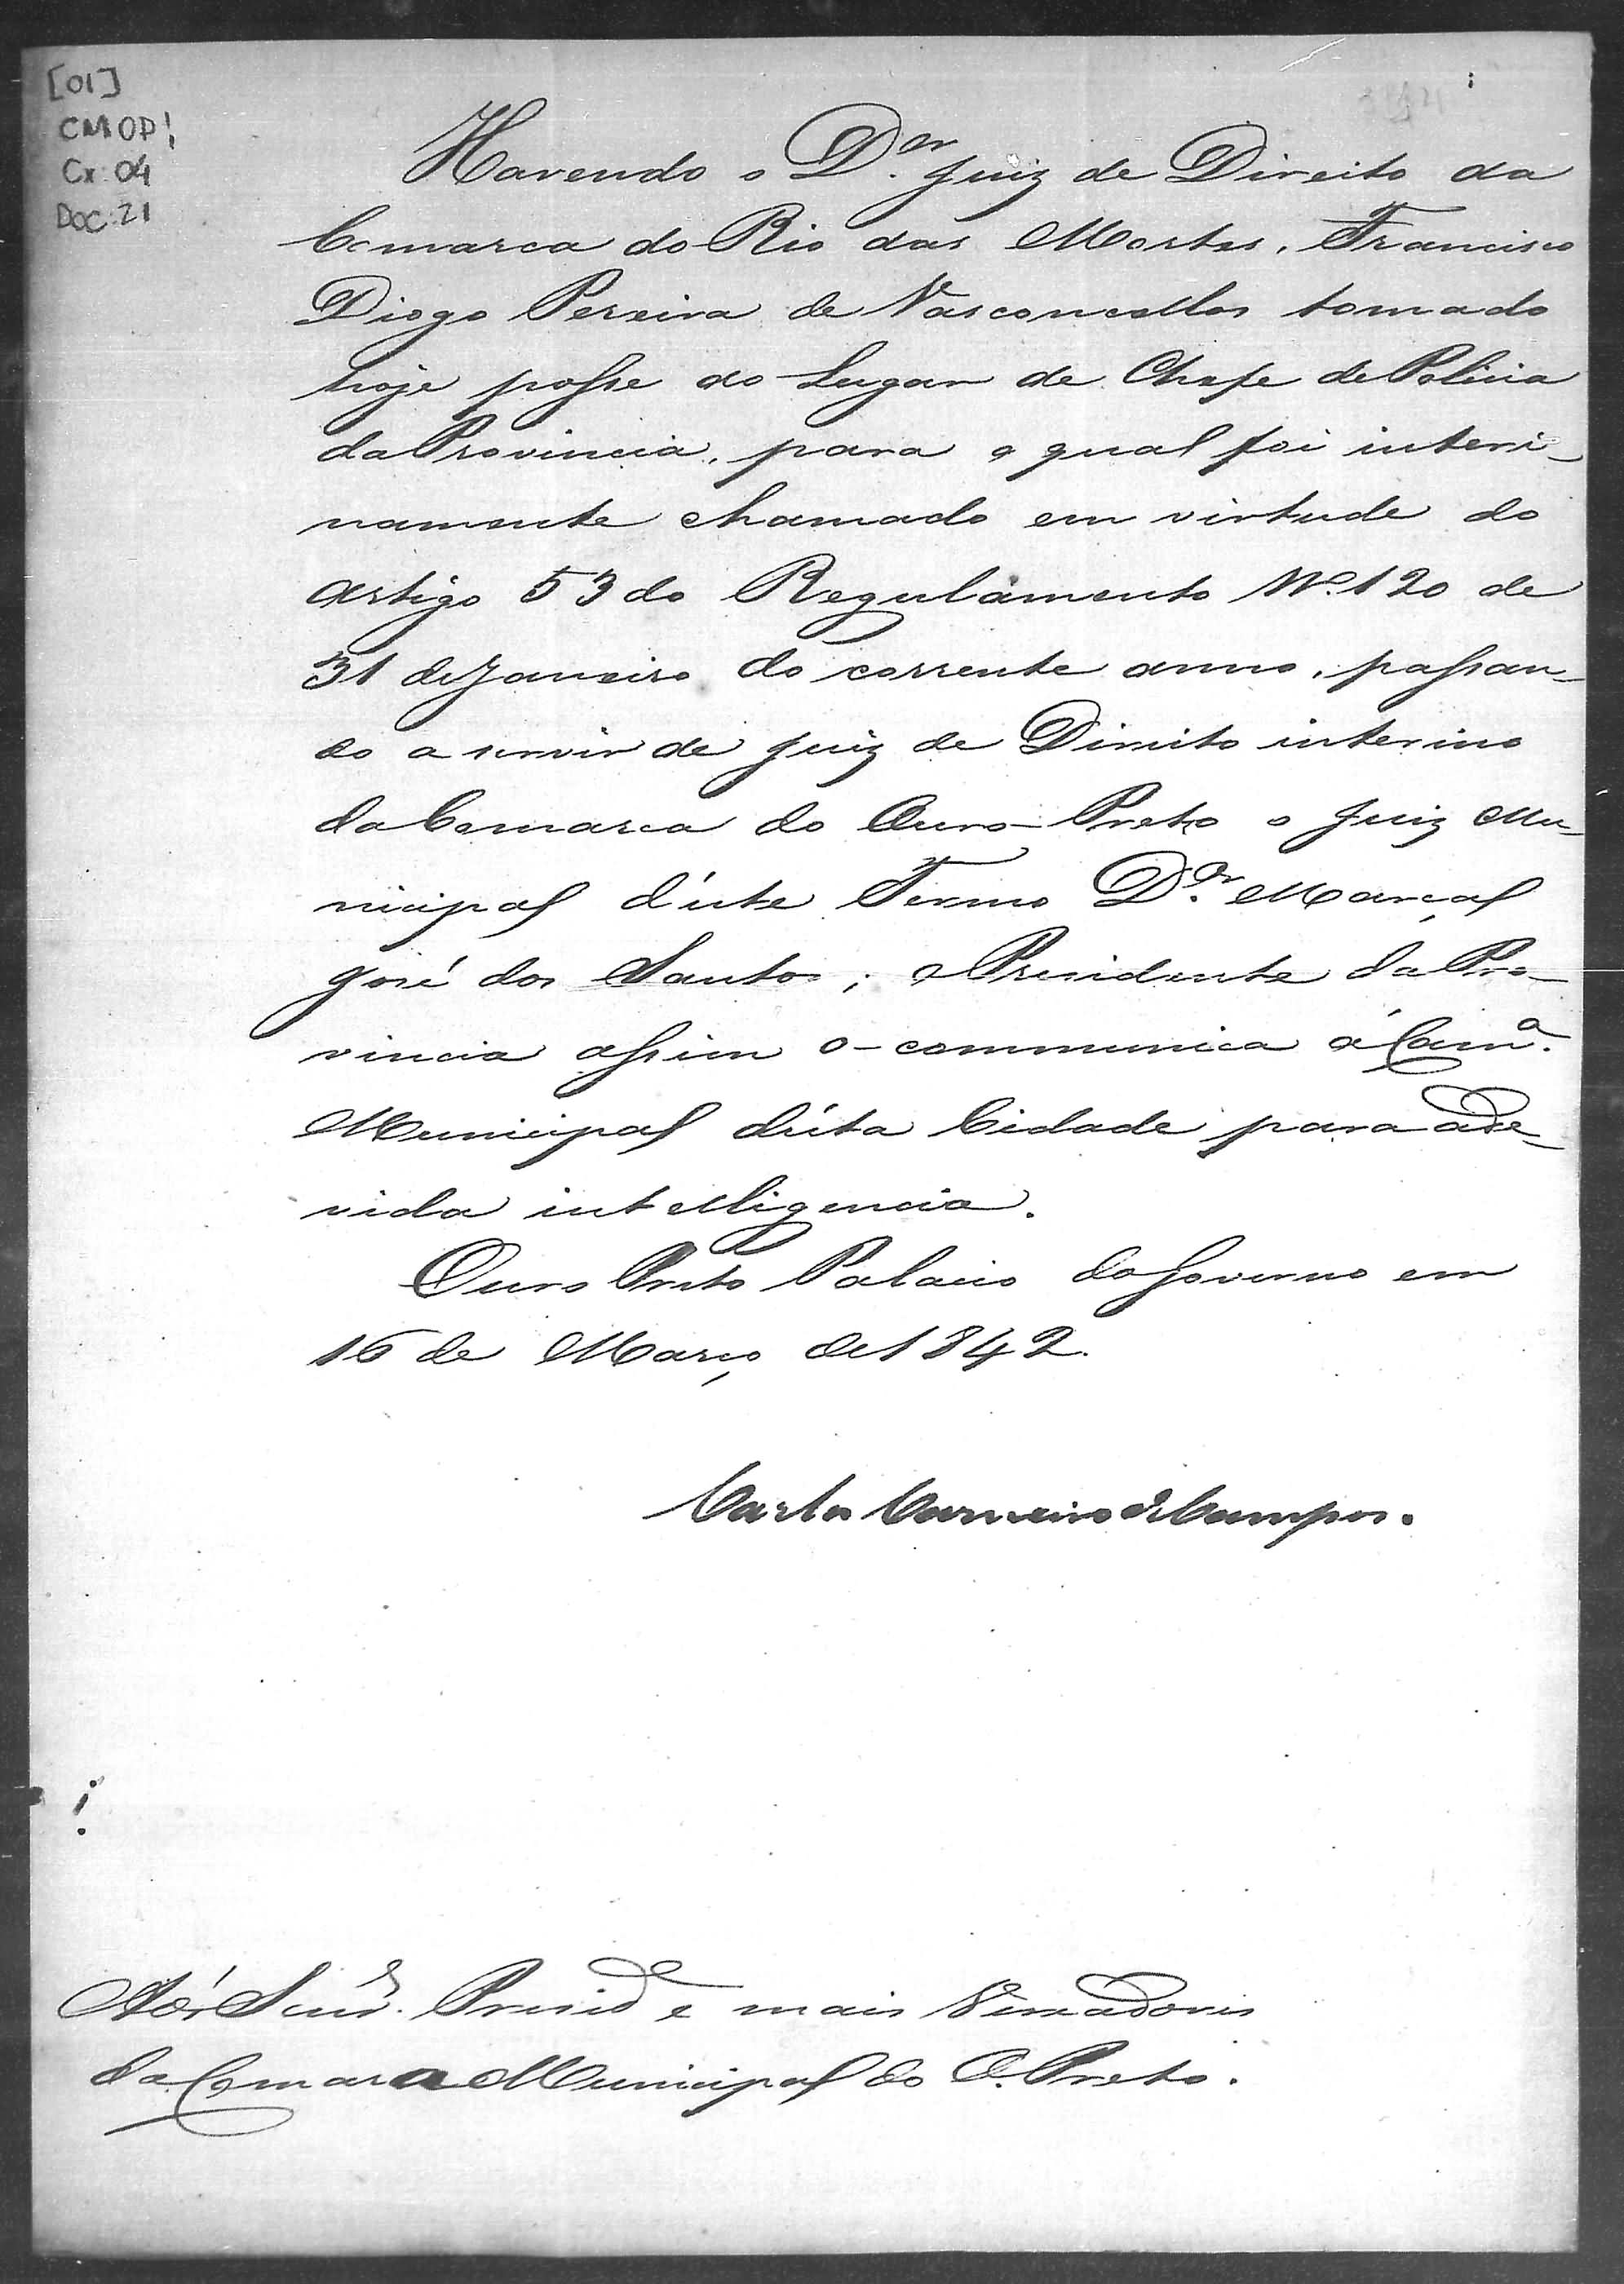 [01]
CMOP!
Cx: 04
DOC: 21
Havendo o D.or Juiz de Direito da
Comarca do Rio das Mortes, Francisco
Diogo Pereira de Vasconcellos tomado
hoje posse do Lugar de Chefe de Policia
da Provincia, para o qual foi interi-
namente chamado em virtude do
artigo 53 do Regulamento Nº 120 de
31 de Janeiro do corrente anno, passan-
do a servir de Juiz de Direito interino
da Comarca do Ouro Preto o Juiz Mu-
nicipal d'este Termo D.or Marçal
José dos Santos; o Presidente da Pro-
vincia assim o-communica á Camª
Municipal d'esta Cidade para a de-
vida intelligencia.
Ouro Preto Palacio do Governo em
16 de Março de 1842.
Carlos Carneiro de Campos.
Aos Snrs. Presid.e e mais Vereadores
da Camara Municipal do O. Preto.